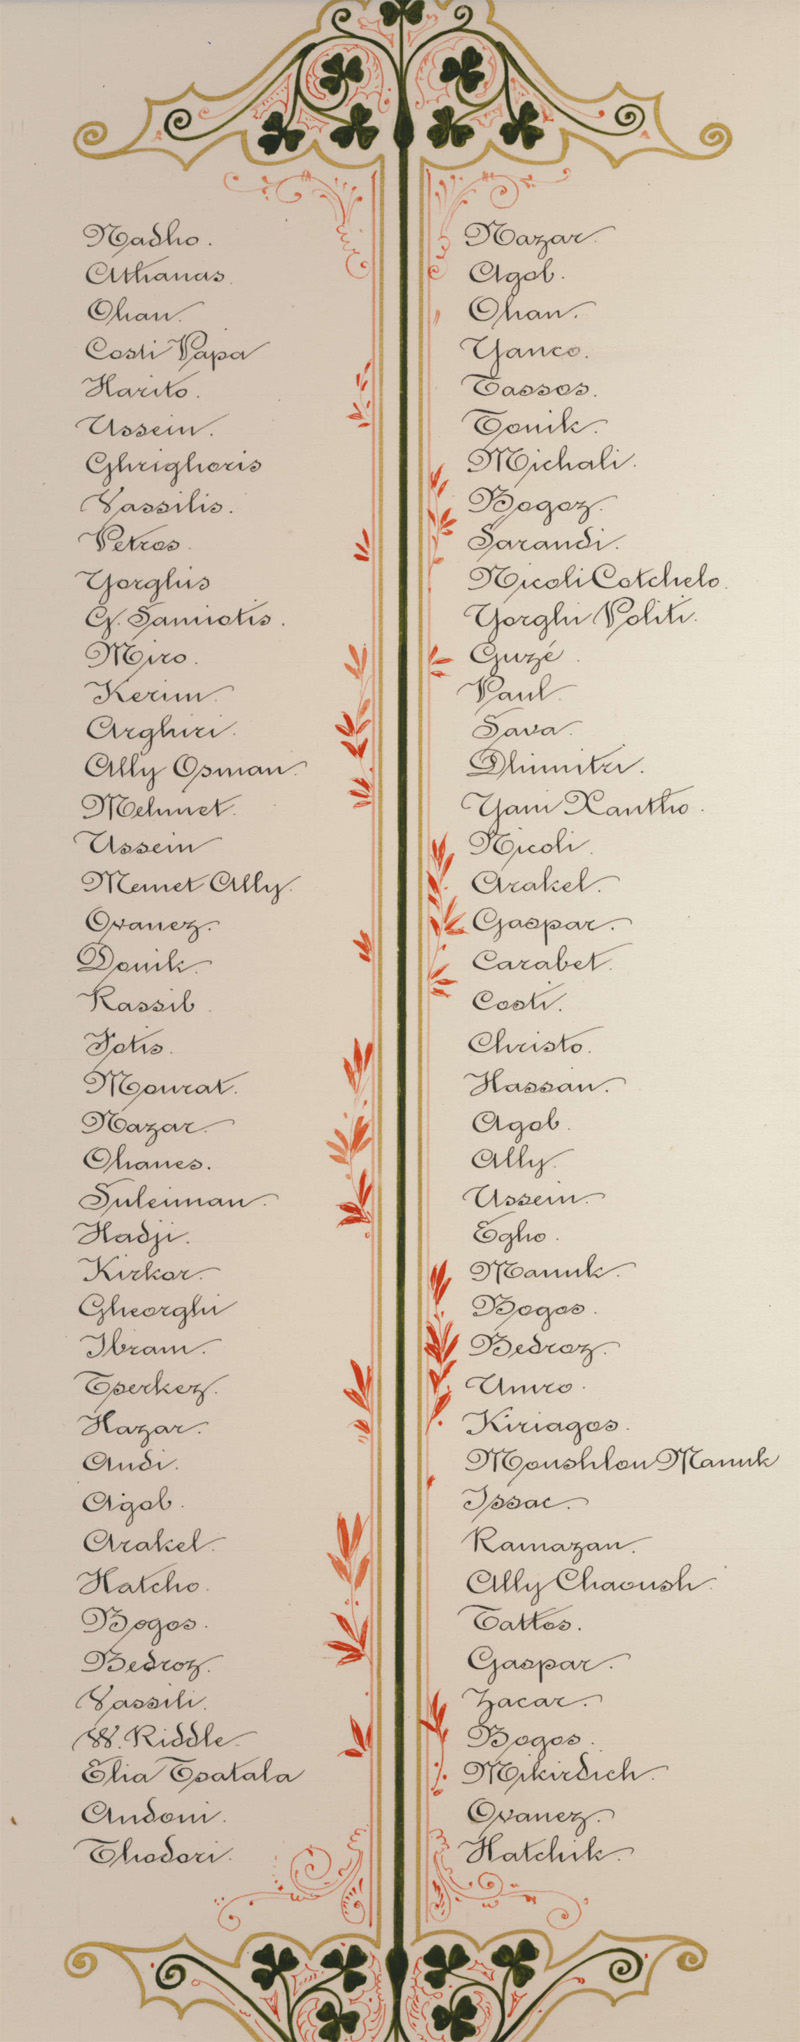 Nadho.
Athanas.
Ohan.
Costi Papa
Harito.
Ussein.
Ghrighoris
Vassilis.
Petros.
Yorghis
G. Samiotis.
Miro.
Kerim.
Arghiri.
Ally Osman.
Mehmet.
Ussein
Memet Ally.
Ovanez.
Donik.
Rassib.
Fotis.
Mourat.
Nazar.
Ohanes.
Suleiman.
Hadji.
Kirkor.
Gheorghi
Ibram.
Tperkez.
Hazar.
Andi.
Agob.
Arakel.
Hatcho.
Bogos.
Bedroz.
Vassili.
W. Riddle.
Elia Tsatala
Andoni.
Thodori.
Nazar.
Agob.
Ohan.
Yanco.
Tassos.
Tonik.
Michali.
Bogoz.
Sarandi.
Nicoli Cotchelo.
Yorghi Politi.
Guzé.
Paul.
Sava.
Dhimitri.
Yani Xantho.
Nicoli.
Arakel.
Gaspar.
Carabet.
Costi.
Christo.
Hassan.
Agob.
Ally.
Ussein.
Egho.
Manuk.
Bogos.
Bedroz.
Umro.
Kiriagos.
Moushlou Manuk
Issac.
Ramazan.
Ally Chaoush.
Tattos.
Gaspar.
Zacar.
Bogos.
Mikirdich.
Ovanez.
Hatchik.